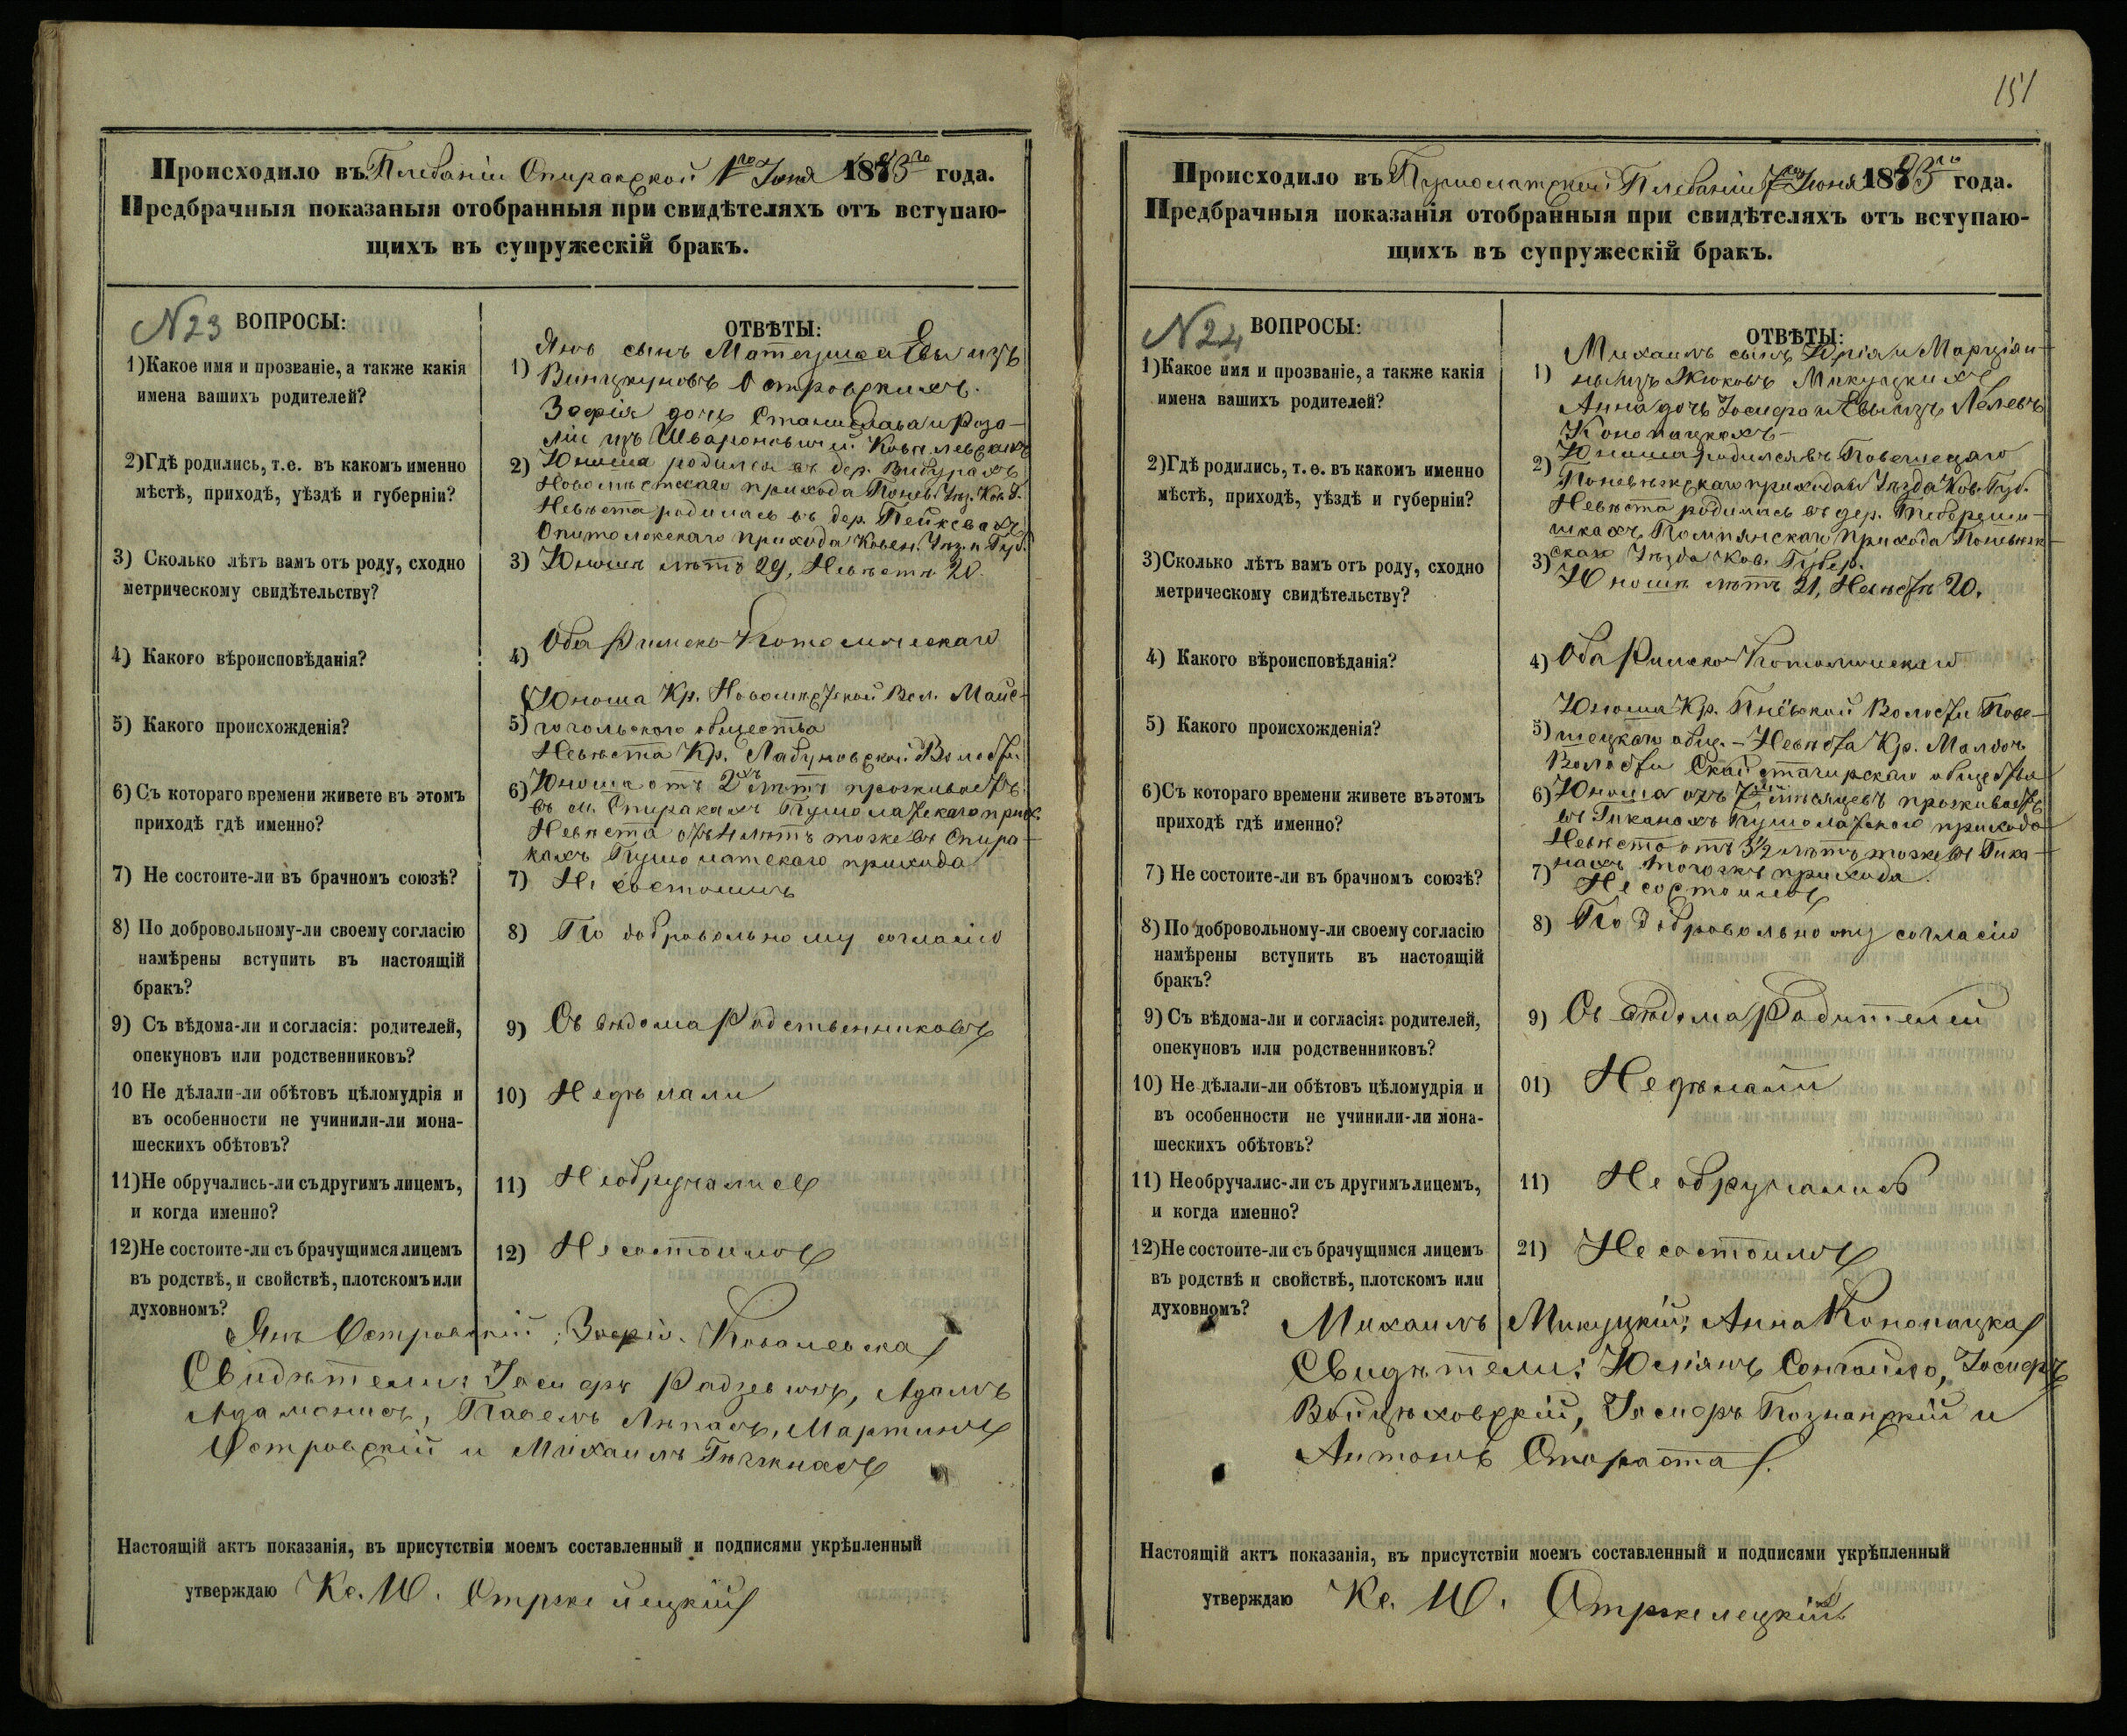 Происходило въ Плебаніи Опиракской 1го Іюня 1883го года.
Предбрачныя показаныя отобранныя при свидѣтеляхъ отъ вступаю-
щихъ въ супружескій бракъ.
N 23 ВОПРОСЫ:
1) Какое имя и прозваніе, а также какія
имена вашихъ родителей?
2) Гдѣ родились, т.е. въ какомъ именно
мѣстѣ, приходѣ, уѣздѣ и губерніи?
3) Сколько лѣтъ вамъ отъ роду, сходно
метрическому свидѣтельству?
4) Какого вѣроисповѣданія?
5) Какого происхожденія?
6) Съ котораго времени живете въ этомъ
приходѣ гдѣ именно?
7) Не состоите-ли въ брачномъ союзѣ?
8) По добровольному-ли своему согласію
намѣрены вступить въ настоящій
бракъ?
9) Съ вѣдома-ли и согласія: родителей,
опекуновъ или родственниковъ?
10 Не дѣлали-ли обѣтовъ цѣломудрія и
въ особенности не учинили-ли мона-
шескихъ обѣтовъ?
11) Не обручались-ли съ другимъ лицемъ,
и когда именно?
12) Не состоите-ли съ брачущимся лицемъ
въ родствѣ, и свойствѣ, плотскомъ или
духовномъ?
ОТВѢТЫ:
Янъ сынъ Матеуша и Евы изъ
1) Островскихъ.
Зофія дочь Станислава и Роза-
ліи изъ Швароновичей Ковалевскихъ
2) Юноша родился въ дер.
Новомѣстскаго прихода Понев. Уѣз. Ков. Г.
Невѣста родилась въ дер. Пейксвахъ
Опитолокскаго прихода Ковен. Уѣз. и Губ.
3) Юношѣ лѣтъ 29, Невѣстѣ 20.
4) Оба Римско-Католическаго
Юноша Кр. Новомѣстской Вол. Майс-
5) гогольскаго общества
Невѣста Кр. Лабуновской Волости.
6) Юноша отъ 2хъ лѣтъ проживаетъ
въ м. Опиракахъ Пушолатскаго прих.
Невѣста отъ 4 лѣтъ тоже въ Опира-
кахъ Пушолатскаго прихода
7) Не состоимъ
8) По добровольному согласію
9) Съ вѣдома Родственниковъ
10) Недѣлали
11) Необручались
12) Не состоимъ
Янъ Островскій; Зофія Ковалевска
Свидѣтели: Іосифъ Радзевичъ, Адамъ
Адамонисъ, Павелъ Лѣпасъ, Мартинъ
Островскій и Михаилъ
Настоящій актъ показанія, въ присутствіи моемъ составленный и подписями укрѣпленный
утверждаю Кс. Ю. Стржелецкій
151
Происходило въ Пушолатской Плебаніи 7го Іюня 1883го года.
Предбрачныя показанія отобранныя при свидѣтеляхъ отъ вступаю-
щихъ въ супружескій бракъ.
N 24 ВОПРОСЫ:
1) Какое имя и прозваніе, а также какія
имена вашихъ родителей?
2) Гдѣ родились, т. е. въ какомъ именно
мѣстѣ, приходѣ, уѣздѣ и губерніи?
3) Сколько лѣтъ вамъ отъ роду, сходно
метрическому свидѣтельству?
4) Какого вѣроисповѣданія?
5) Какого происхожденія?
6) Съ котораго времени живете въ этомъ
приходѣ гдѣ именно?
7) Не состоите-ли въ брачномъ союзѣ?
8) По добровольному-ли своему согласію
намѣрены вступить въ настоящій
бракъ?
9) Съ вѣдома-ли и согласія: родителей,
опекуновъ или родственниковъ?
10) Не дѣлали-ли обѣтовъ цѣломудрія и
въ особенности не учинили-ли мона-
шескихъ обѣтовъ?
11) Необручалис-ли съ другимъ лицемъ,
и когда именно?
12) Не состоите-ли съ брачущимся лицемъ
въ родствѣ и свойствѣ, плотскомъ или
духовномъ?
ОТВѢТЫ:
Михаилъ сынъ Юрія и Марціян-
1) ны изъ Жюковъ Микуцкихъ
Анна дочь Іосифа и Евы изъ Лелевъ
Конопацкихъ
2) Юноша родился въ
Поневѣжскаго прихода и Уѣзда Ков. Губ.
Невѣста родилась въ дер.
шкахъ Помпянскаго Прихода Поневѣж-
3) скаго Уѣзда Ков. Губер.
Юношѣ лѣтъ 21, Невѣстѣ 20.
4) Оба Римско Католическаго
Юноша Кр. Волости Пове-
5) шецкаго общ. - Невѣста Кр.
Волости общества
6) Юноша отъ 7 мѣсяцевъ проживаетъ
въ Гиканахъ Пушолатскаго прихода
Невѣста отъ 3½ лѣтъ тоже въ Гика-
7) нахъ тогожъ прихода.
Не состоимъ
8) По добровольному согласію
9) Съ вѣдома Родителей
01) Недѣлали
11) Не обручались
21) Не состоимъ
Михаилъ Микуцкій; Анна Конопацка
Свидѣтели: Юліянъ Сонгайло, Іосифъ
Войцѣховскій, Іосифъ Познанскій и
Антонъ
Настоящій актъ показанія, въ присутствіи моемъ составленный и подписями укрѣпленный
утверждаю Кс. Ю. Стржелецкій